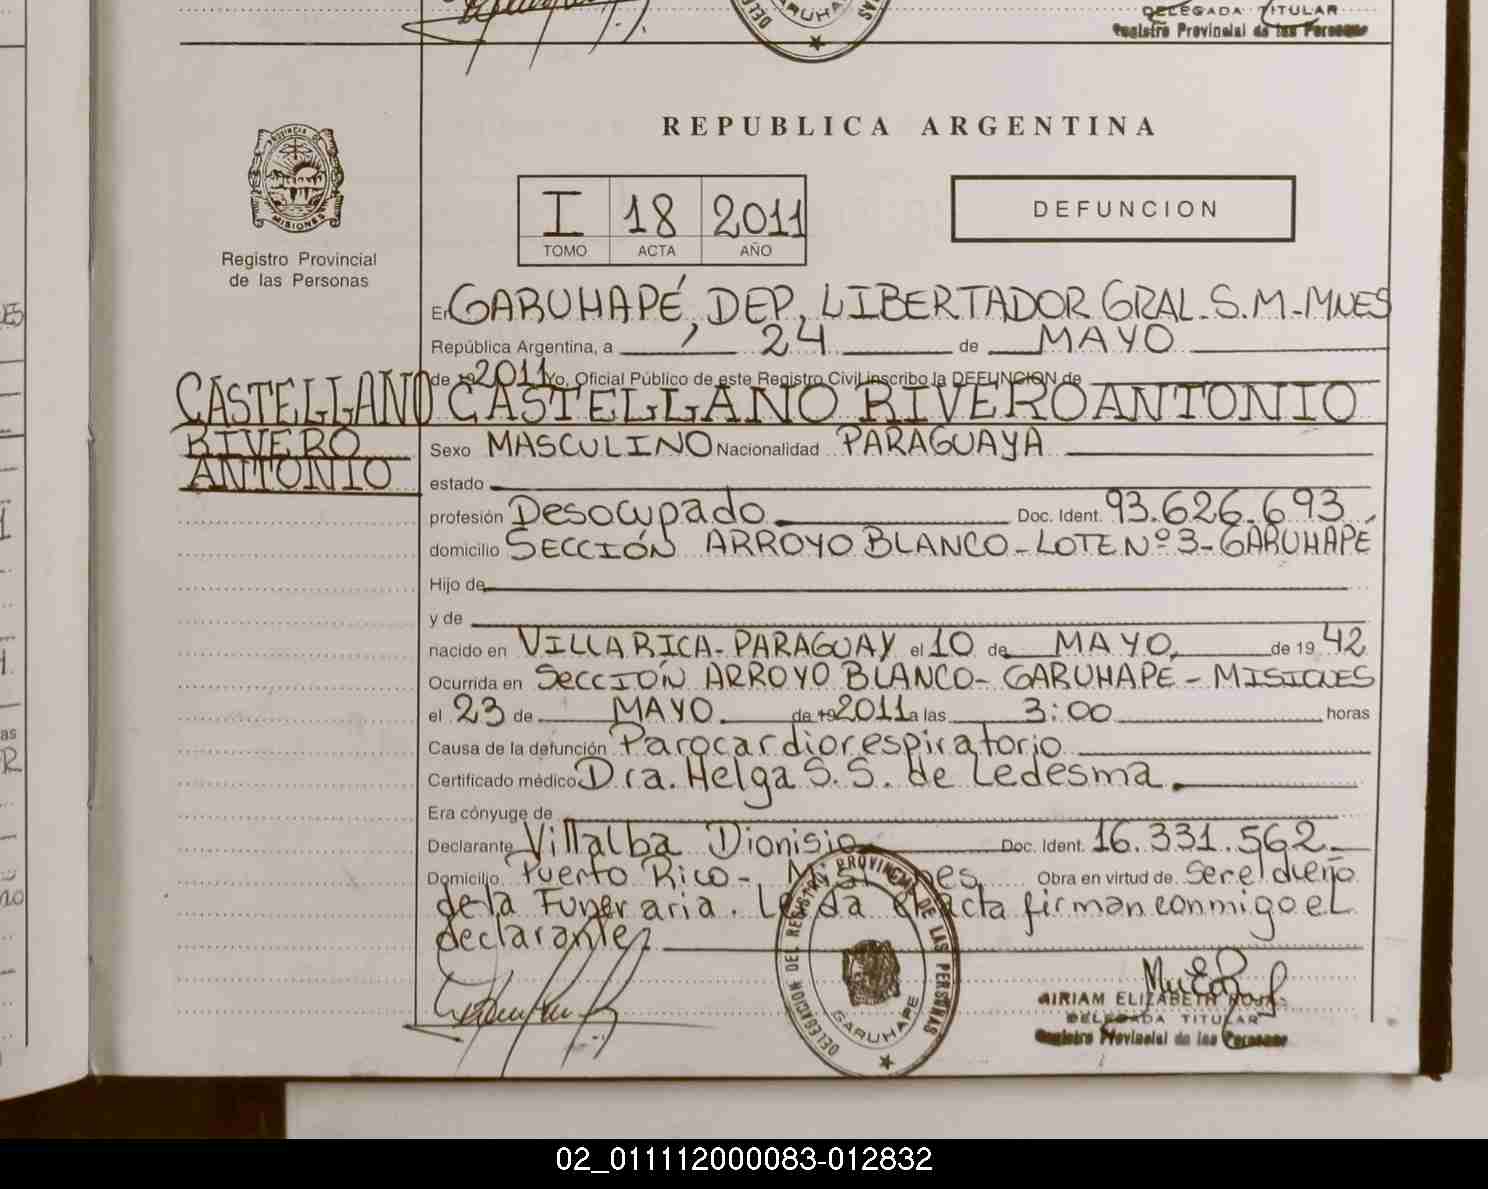 DELEGADA TITULAR
Registro Provincial de las Personas
REPUBLICA ARGENTINA
PROVINCIA DE
MISIONES
Registro Provincial
de las Personas
I 18 2011
TOMO ACTA AÑO
DEFUNCION
En GARUHAPÉ, DEP, LIBERTADOR GRAL. S.M-MNES
República Argentina, a 24 de MAYO
de 19 2011 Yo, Oficial Público de este Registro Civil inscribo la DEFUNCION de
CASTELLANO CASTELLANO RIVERO ANTONIO
RIVERO
ANTONIO
Sexo MASCULINO Nacionalidad PARAGUAYA
estado
profesión Desocupado Doc. Ident. 93.626.693
domicilio SECCIÓN ARROYO BLANCO-LOTE Nº 3-GARUHAPÉ
Hijo de
y de
nacido en VILLARICA-PARAGUAY el 10 de MAYO de 19 42
Ocurrida en SeccIÓN ARROYO BLANCO- GARUHAPÉ - MISIONES
el 23 de MAYO de 19 2011 a las 3:00 horas
Causa de la defunción Parocardiorespiratorio
Certificado médico Dra. Helga S.S. de Ledesma
Era cónyuge de
Declarante Villalba Dionisio Doc. Ident. 16.331.562
Domicilio Puerto Rico- Misiones Obra en virtud de Ser el dueño
de la Funeraria. Leída el acta firman conmigo el
declarante.
DELEGACION DEL REGISTRO PROVINCIAL DE LAS PERSONAS
GARUHAPE
MIRIAM ELIZABETH ROJAS
DELEGADA TITULAR
Registro Provincial de las Personas
02_011112000083-012832